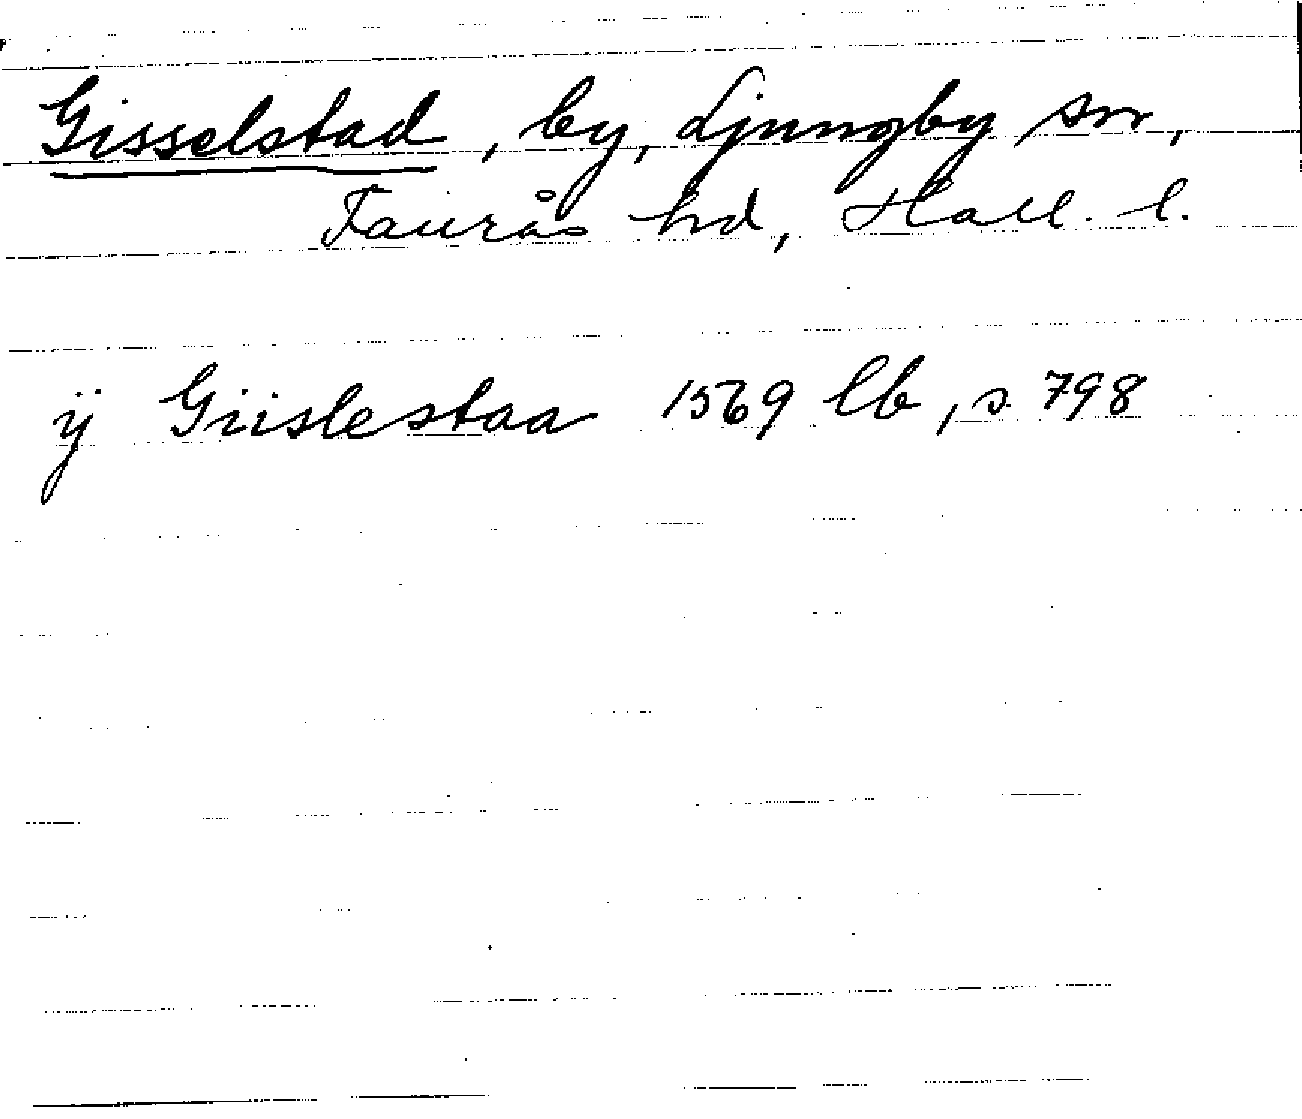 Gisselstad, by, Ljungby sn,
Faurås hd, Hall. l.
ÿ Giislestaa 1569 lb, s. 798